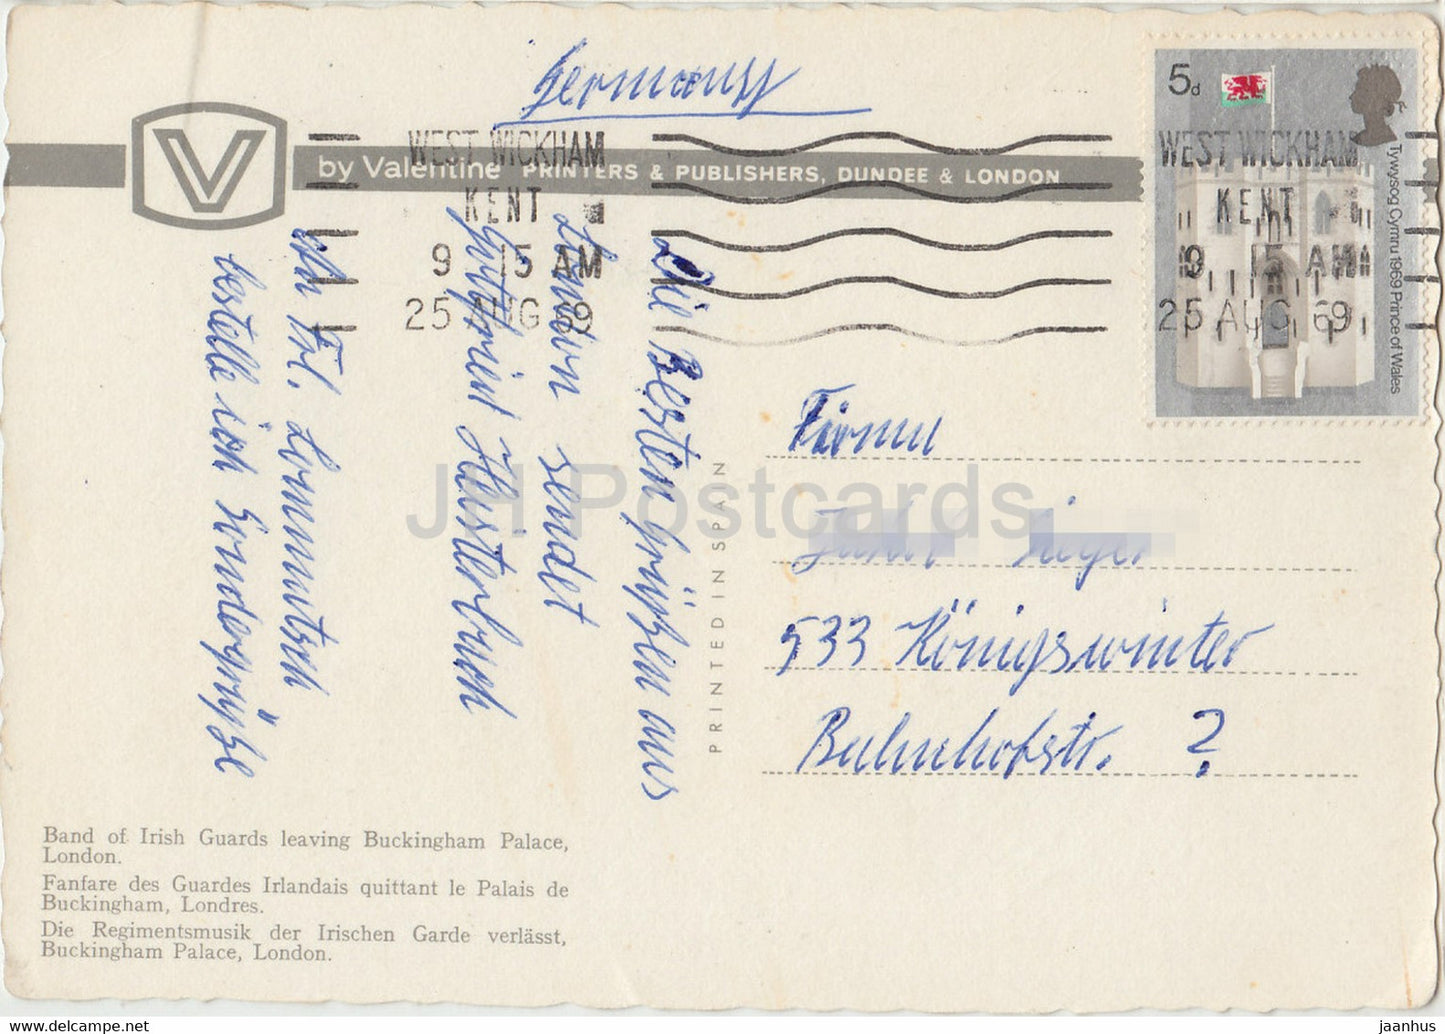 Germany
V
by Valentine PRINTERS & PUBLISHERS, DUNDEE & LONDON
WEST WICKHAM
KENT
9 15 AM
25 AUG 69
5d
Tywysog Cymru 1969 Prince of Wales
WEST WICKHAM
KENT
9 15 AM
25 AUG 69
Die Besten Grüßen aus
London sendet
Gottfried Heisterbach
An Frl. Lommetsch
bestelle ich Sondergrüße
PRINTED IN SPAIN
Firma
533 Königswinter
Bahnhofstr. ?
Band of Irish Guards leaving Buckingham Palace,
London.
Fanfare des Guardes Irlandais quittant le Palais de
Buckingham, Londres.
Die Regimentsmusik der Irischen Garde verlässt,
Buckingham Palace, London.
JH Postcards
https://www.delcampe.net
jaanhus